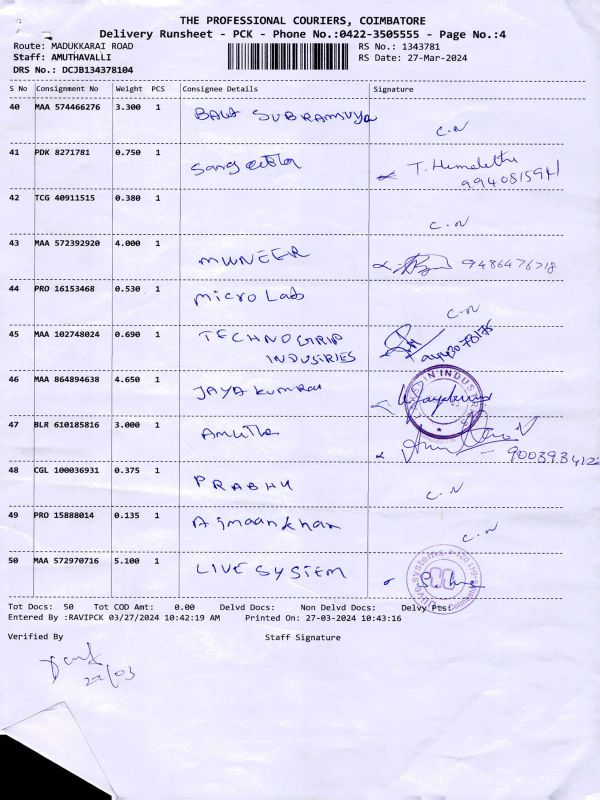 THE PROFESSIONAL COURIERS, COIMBATORE
Delivery Runsheet - PCK - Phone No.:0422-3505555 - Page No.:4
Route: MADUKKARAI ROAD RS No.: 1343781
Staff: AMUTHAVALLI RS Date: 27-Mar-2024
DRS No.: DCJB134378104
S No Consignment No Weight PCS Consignee Details Signature
40 MAA 574466276 3.300 1
C.N
41 PDK 8271781 0.750 1 Sangeetha T. Hemalatha
42 TCG 40911515 0.380 1
C.N
43 MAA 572392920 4.000 1 MUNEER
44 PRO 16153468 0.530 1 Micro Lab C.N
45 MAA 102748024 0.690 1 TECHNOGRIP
INDUSTRIES
46 MAA 864894638 4.650 1 JAYA Kumar
47 BLR 610185816 3.000 1 Amutha
48 CGL 100036931 0.375 1 PRABHU C.N
49 PRO 15888014 0.135 1 Ajmaankhan C.N
50 MAA 572970716 5.100 1 LIVE SYSTEM
Tot Docs: 50 Tot COD Amt: 0.00 Delvd Docs: Non Delvd Docs: Delvy Pts:
Entered By :RAVIPCK 03/27/2024 10:42:19 AM Printed On: 27-03-2024 10:43:16
Verified By Staff Signature